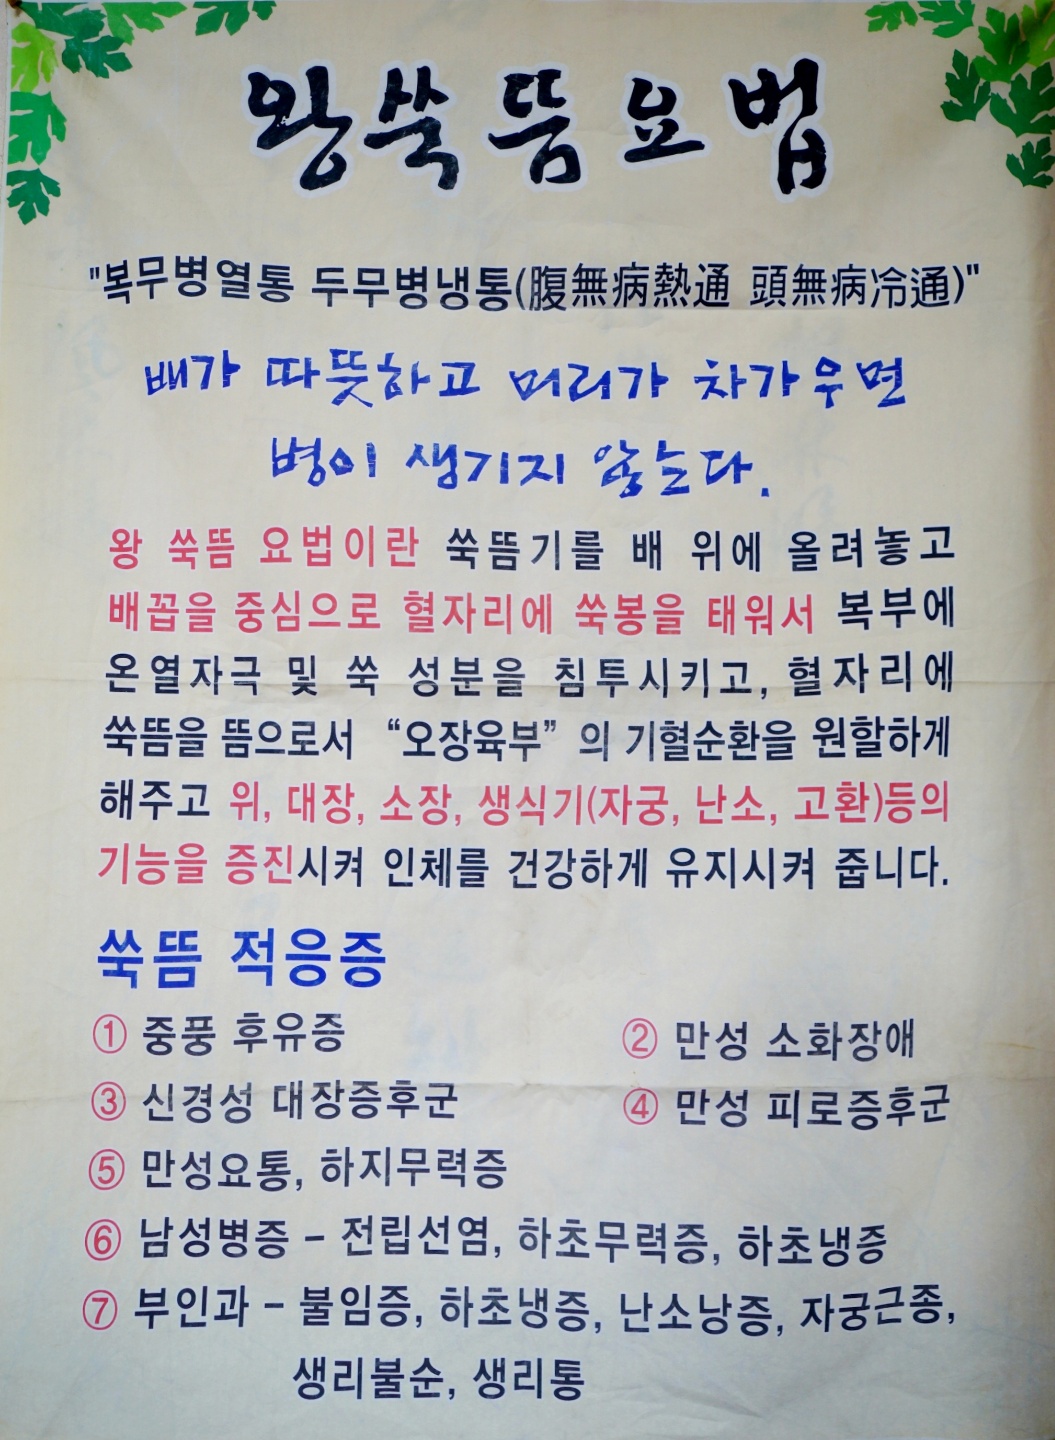 왕쑥뜸요법
"복무병열통 두무병냉통(腹無病熱通 頭無病冷通)"
배가 따뜻하고 머리가 차가우면
병이 생기지 않는다.
왕 쑥뜸 요법이란 쑥뜸기를 배 위에 올려놓고
배꼽을 중심으로 혈자리에 쑥봉을 태워서 복부에
온열자극 및 쑥 성분을 침투시키고, 혈자리에
쑥뜸을 뜸으로서 “오장육부”의 기혈순환을 원할하게
해주고 위, 대장, 소장, 생식기(자궁, 난소, 고환)등의
기능을 증진시켜 인체를 건강하게 유지시켜 줍니다.
쑥뜸 적응증
① 중풍 후유증 ② 만성 소화장애
③ 신경성 대장증후군 ④ 만성 피로증후군
⑤ 만성요통, 하지무력증
⑥ 남성병증 – 전립선염, 하초무력증, 하초냉증
⑦ 부인과 – 불임증, 하초냉증, 난소낭증, 자궁근종,
생리불순, 생리통